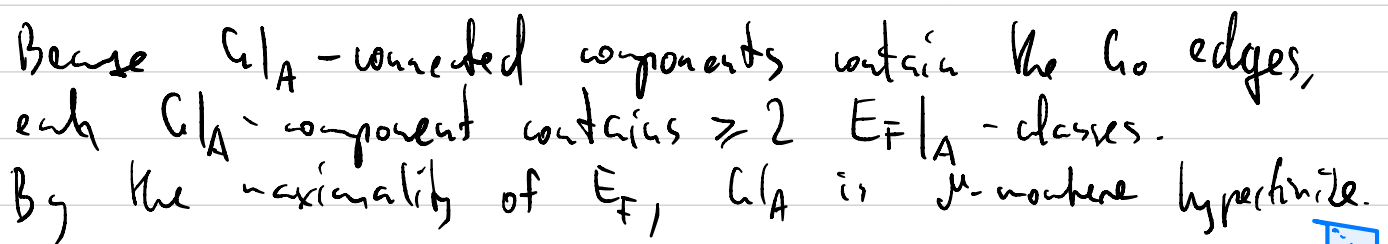 Because G|_A-connected components contain the G_0 edges,
each G|_A-component contains ≥ 2 E_F|_A-classes.
By the maximality of E_F, G|_A is μ-nowhere hyperfinite.